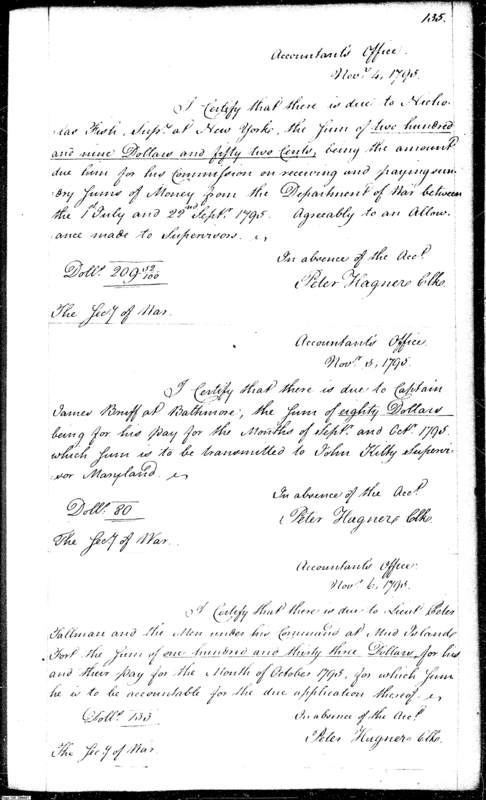 135.
Accountant's Office
Novr. 4, 1795.
I Certify that there is due to Nicho-
las Fish, Supr. at New York, the Sum of two hundred
and nine Dollars and fifty two Cents, being the amount
due him for his Commission on receiving and paying sun-
dry Sums of Money from the Department of War between
the 1st July and 22nd Septr. 1795. Agreeably to an Allow-
ance made to Supervisors.
In absence of the Acct.
Dolls. 209 52/100
Peter Hagner Clk.
The Secy. of War.
Accountant's Office
Novr. 5, 1795.
I Certify that there is due to Captain
James Bruff at Baltimore, the Sum of eighty Dollars
being for his pay for the Months of Septr. and Octr. 1795.
which Sum is to be transmitted to John Kilty Supervi-
sor Maryland.
In absence of the Acct.
Dolls. 80
Peter Hagner Clk.
The Secy. of War.
Accountant's Office.
Novr. 6, 1795.
I Certify that there is due to Lieut Peter
Tallman and the Men under his Command at Mud Island
Fort the Sum of one hundred and thirty three Dollars, for his
and their pay for the Month of October 1795, for which Sum
he is to be accountable for the due application thereof.
Dolls. 133
In absence of the Acct.
Peter Hagner Clk.
The Secy. of War.